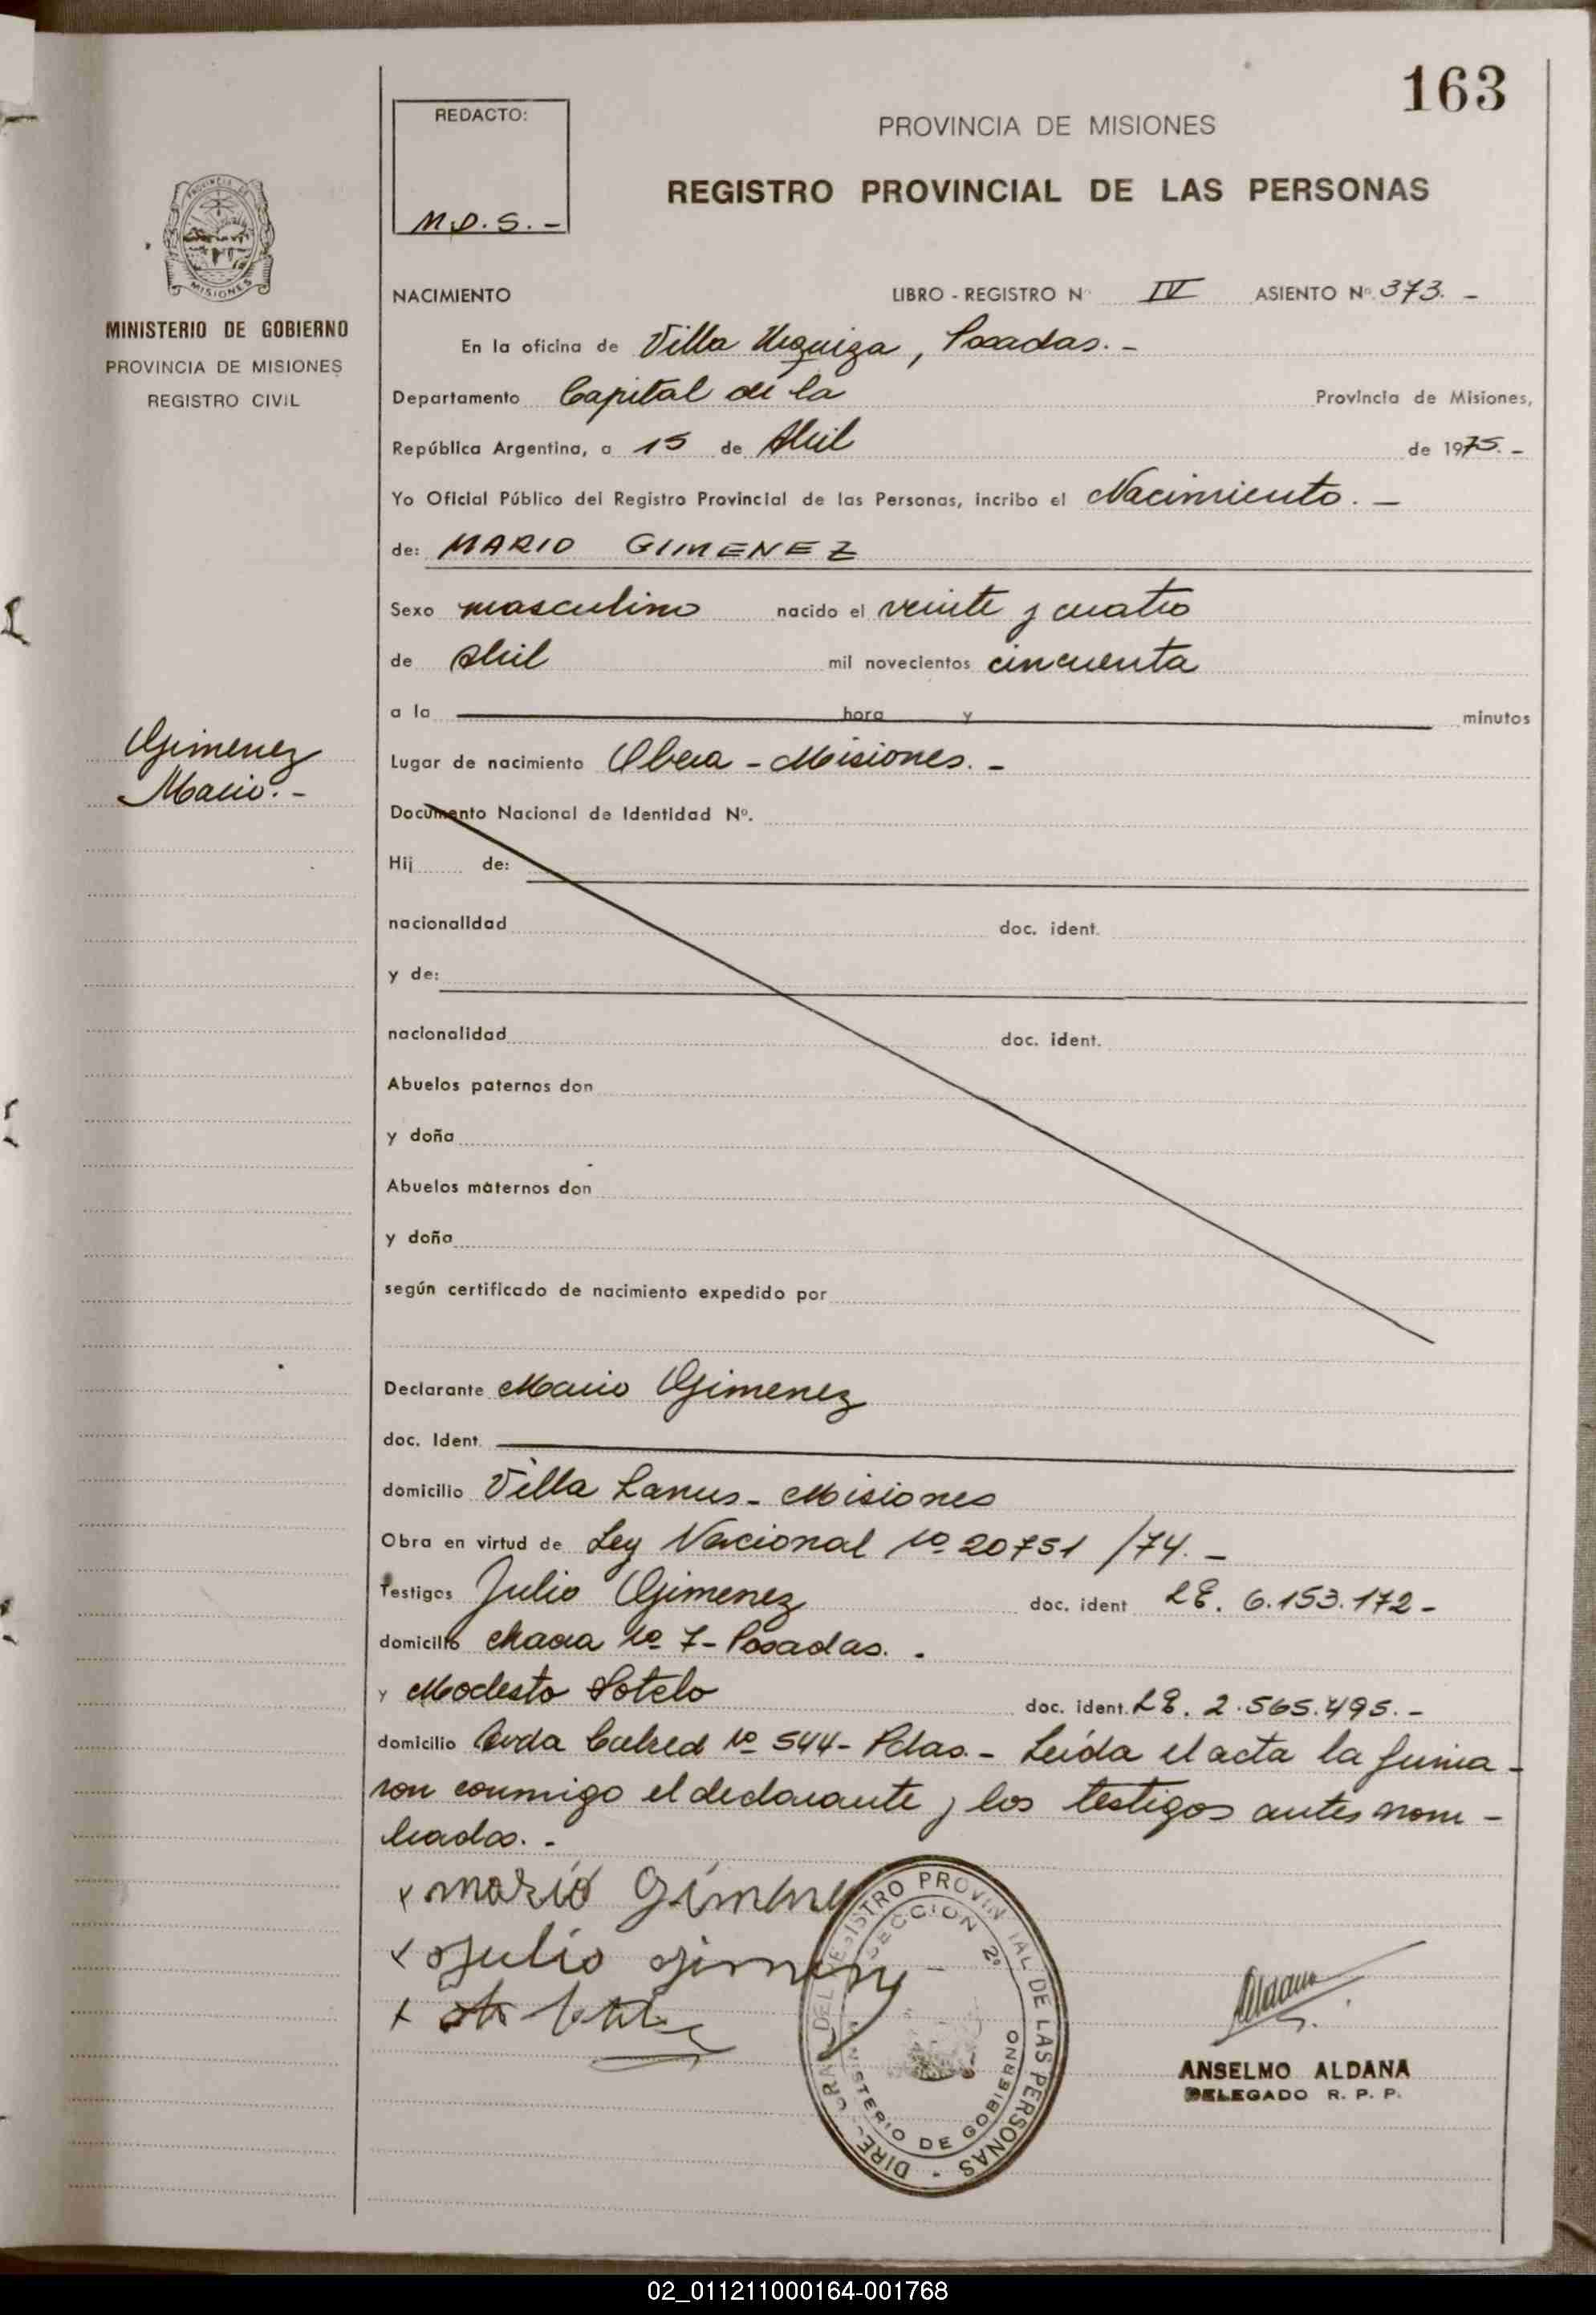 163
REDACTO:
M.D.S. -
PROVINCIA DE MISIONES
REGISTRO PROVINCIAL DE LAS PERSONAS
PROVINCIA DE
MISIONES
MINISTERIO DE GOBIERNO
PROVINCIA DE MISIONES
REGISTRO CIVIL
NACIMIENTO LIBRO - REGISTRO Nº IV ASIENTO Nº 373. -
En la oficina de Villa Urquiza, Posadas. -
Departamento Capital de la Provincia de Misiones,
República Argentina, a 15 de Abril de 1975. -
Yo Oficial Público del Registro Provincial de las Personas, incribo el Nacimiento. -
de: MARIO GIMENEZ
Sexo masculino nacido el veinte y cuatro
de Abril mil novecientos cincuenta
a la hora y minutos
Gimenez
Mario. -
Lugar de nacimiento Obera - Misiones. -
Documento Nacional de Identidad Nº.
Hij de:
nacionalidad doc. ident.
y de:
nacionalidad doc. ident.
Abuelos paternos don
y doña
Abuelos maternos don
y doña
según certificado de nacimiento expedido por
Declarante Mario Gimenez
doc. Ident.
domicilio Villa Lanus - Misiones
Obra en virtud de Ley Nacional Nº 20751 /74. -
Testigos Julio Gimenez doc. ident LE. 6.153.172 -
domicilio chacra Nº 7 - Posadas. -
y Modesto Sotelo doc. ident. LE. 2.565.495. -
domicilio Avda Cabred Nº 544 - Pdas. - Leída el acta la firma -
ron conmigo el declarante y los testigos antes nom -
brados. -
x mario Gimene
x Julio Gimenez
x
DIRE GRAL DEL REGISTRO PROVINCIAL DE LAS PERSONAS
SECCION 2º
MINISTERIO DE GOBIERNO
ANSELMO ALDANA
DELEGADO R. P. P.
02_011211000164-001768